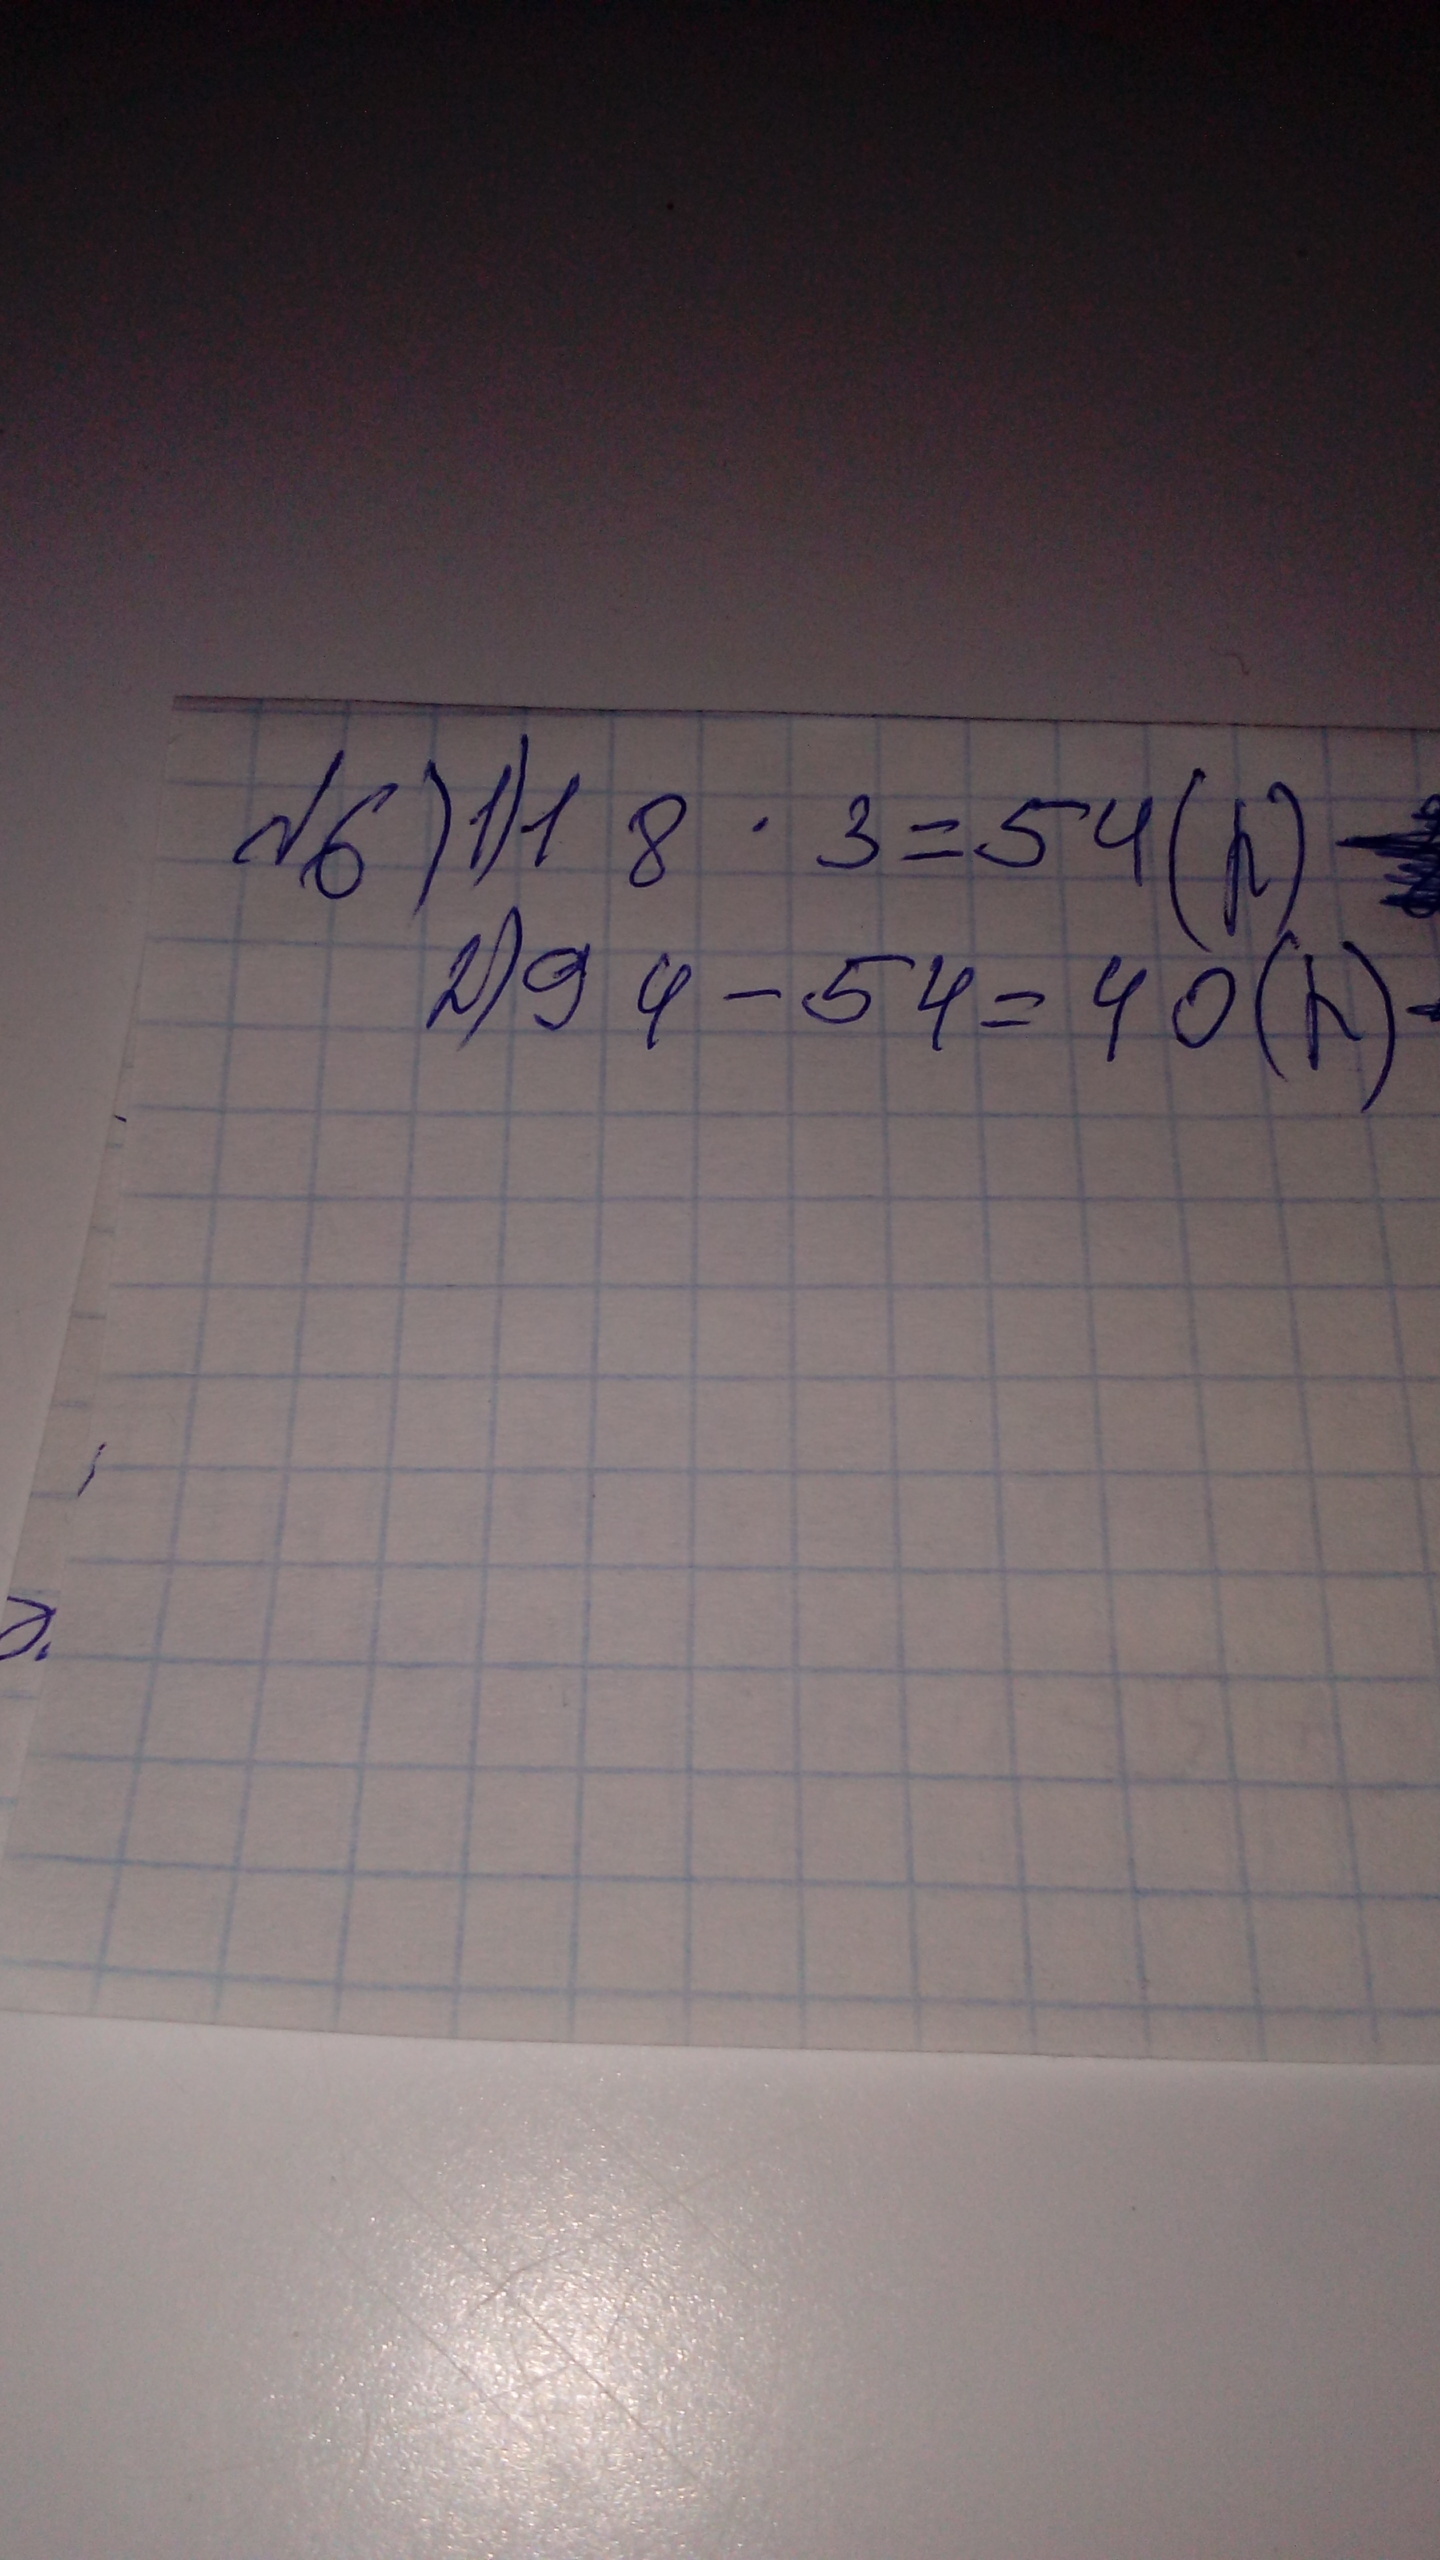 №6) 1) 18 · 3 = 54 (р) -
2) 94 - 54 = 40 (р) -